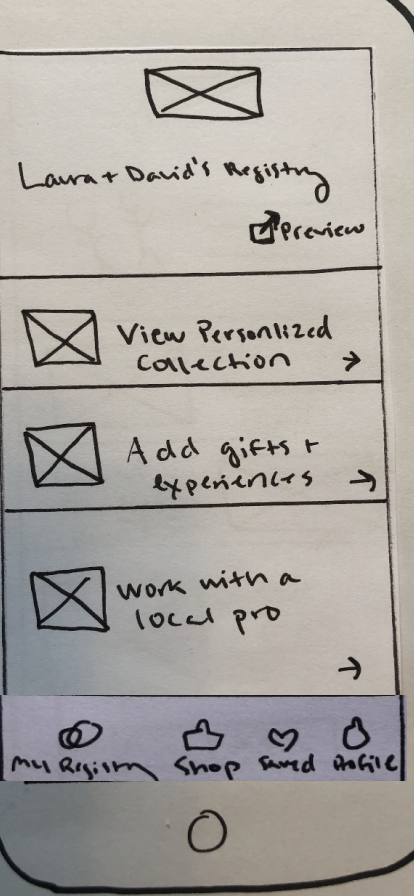 Laura + David's Registry
Preview
View Personlized
Collection
Add gifts +
experiences
work with a
local pro
My Registry Shop Saved Profile